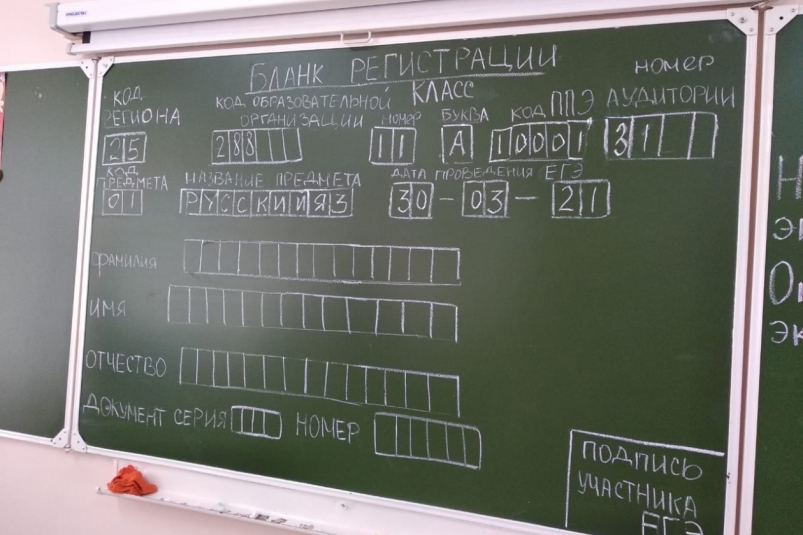 БЛАНК РЕГИСТРАЦИИ
КОД РЕГИОНА
25
КОД ОБРАЗОВАТЕЛЬНОЙ ОРГАНИЗАЦИИ
288
КЛАСС
НОМЕР БУКВА
11 А
КОД ППЭ
10001
НОМЕР АУДИТОРИИ
31
КОД ПРЕДМЕТА
01
НАЗВАНИЕ ПРЕДМЕТА
РУССКИЙЯЗ
ДАТА ПРОВЕДЕНИЯ ЕГЭ
30-03-21
ФАМИЛИЯ
ИМЯ
ОТЧЕСТВО
ДОКУМЕНТ СЕРИЯ НОМЕР
ПОДПИСЬ
УЧАСТНИКА
ЕГЭ